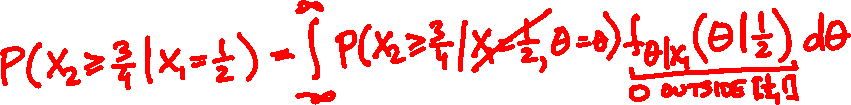 P(X₂ ≥ 3/4 | X₁ = 1/2) = ∫_{-∞}^{∞} P(X₂ ≥ 3/4 | X₁ = 1/2, Θ = θ) f_{Θ|X₁}(θ | 1/2) dθ
0 OUTSIDE [½,1]